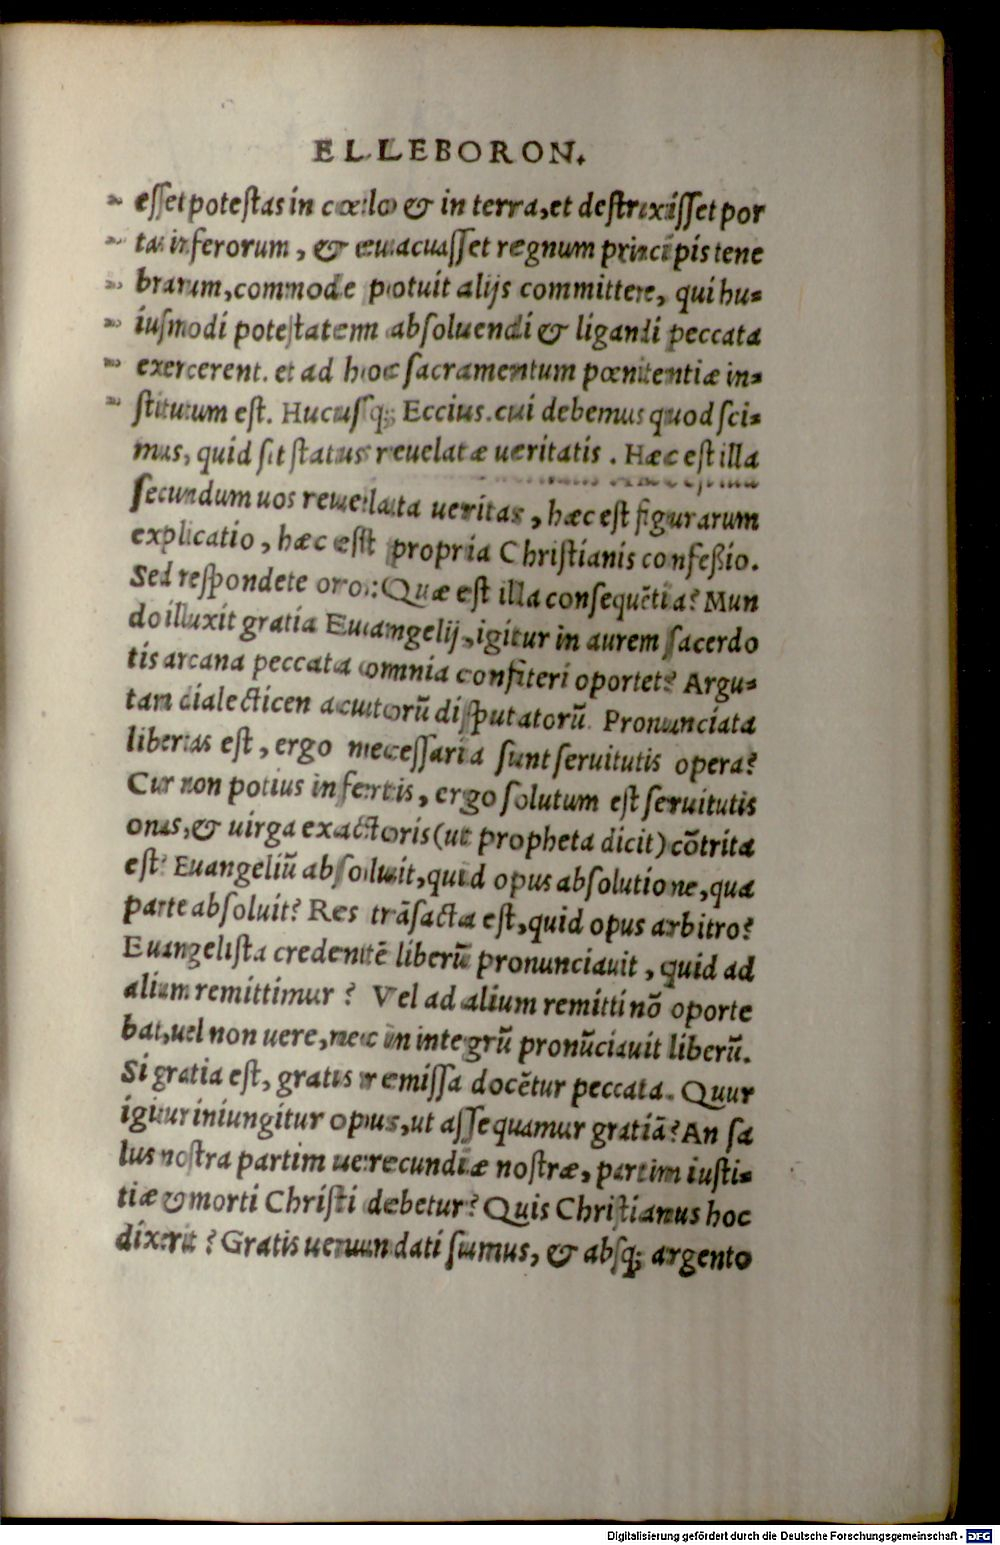 ELLEBORON.
esset potestas in cœlo & in terra, et destruxisset por
tas inferorum, & euacuasset regnum principis tene
brarum, commode potuit alijs committere, qui hu-
iusmodi potestatem absoluendi & ligandi peccata
exercerent. et ad hoc sacramentum pœnitentiæ in-
stitutum est. Hucusq; Eccius. cui debemus quod sci-
mus, quid sit status reuelatæ ueritatis. Hæc est illa
secundum uos reuelata ueritas, hæc est figurarum
explicatio, hæc est propria Christianis confeßio.
Sed respondete oro: Quæ est illa consequētia? Mun
do illuxit gratia Euangelij, igitur in aurem sacerdo
tis arcana peccata omnia confiteri oportet? Argu-
tam dialecticen acutorū disputatorū. Pronunciata
libertas est, ergo necessaria sunt seruitutis opera?
Cur non potius infertis, ergo solutum est seruitutis
onus, & uirga exactoris (ut propheta dicit) cōtrita
est? Euangeliū absoluit, quid opus absolutione, qua
parte absoluit? Res trāsacta est, quid opus arbitro?
Euangelista credentē liberū pronunciauit, quid ad
alium remittimur? Vel ad alium remitti nō oporte
bat, uel non uere, nec in integrū pronūciauit liberū.
Si gratia est, gratis remissa docētur peccata. Quur
igitur iniungitur opus, ut assequamur gratiā? An sa
lus nostra partim uerecundiæ nostræ, partim iusti-
tiæ & morti Christi debetur? Quis Christianus hoc
dixerit? Gratis uenundati sumus, & absq; argento
Digitalisierung gefördert durch die Deutsche Forschungsgemeinschaft - DFG